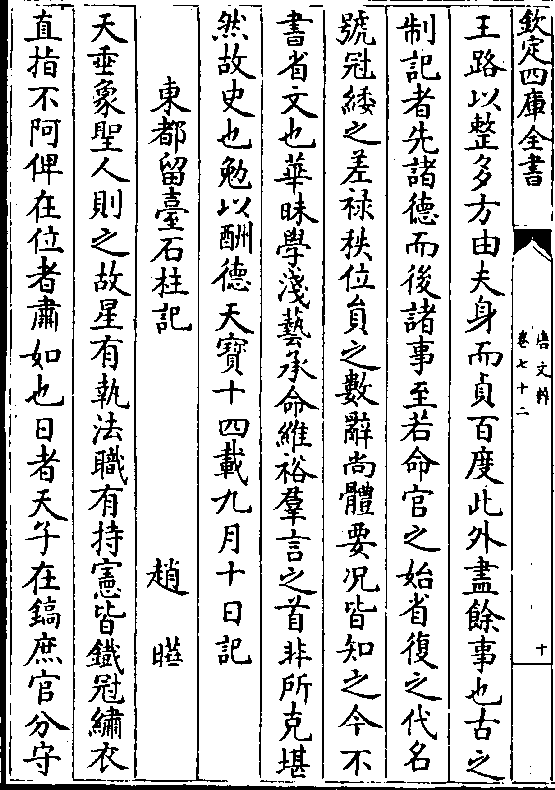 欽定四庫全書
唐文粹
卷七十二
十
王路以整多方由夫身而貞百度此外盡餘事也古之
制記者先諸德而後諸事至若命官之始省復之代名
號冠緌之差祿秩位員之數辭尚體要況皆知之今不
書省文也華昧學淺藝承命維裕羣言之首非所克堪
然故史也勉以酬德天寶十四載九月十日記
東都留臺石柱記　　　趙　㬙
天垂象聖人則之故星有執法職有持憲皆鐵冠繡衣
直指不阿俾在位者肅如也日者天子在鎬庶官分守